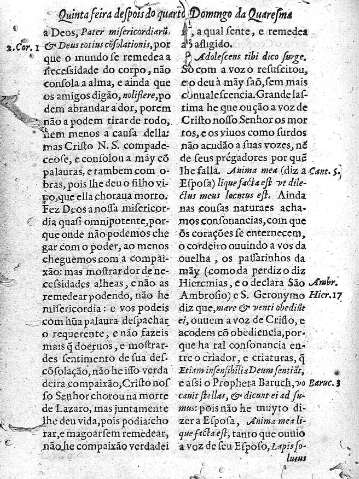 Quinta feira despois do quarto Domingo da Quaresma
a Deos, Pater misericordiarũ,
2. Cor. 1
& Deus totius cõsolationis, por
que o mundo se remedea a
necessidade do corpo, não
consola a alma, e ainda que
os amigos digão, nolisflere, po
dem abrandar a dor, porem
não a podem tirar de todo,
nem menos a causa della:
mas Cristo N. S. compade-
ceose, e consolou a mãy cõ
palauras, e tambem com o-
bras, pois lhe deu o filho vi-
vo, que ella choraua morto.
Fez Deos a nossa misericor-
dia quasi omnipotente, por-
que onde não podemos che
gar com o poder, ao menos
cheguemos com a compai-
xão: mas mostrar dor de ne-
cessidades alheas, e não as
remedear podendo, não he
misericordia: e vos podeis
com hũa palaura despachar
o requerente, e não fazeis
mais q̃ doervos, e mostrar-
des sentimento de sua des-
cõsolação, não he isso verda
deira compaixão, Cristo nos
so Senhor chorou na morte
de Lazaro, mas juntamente
lhe deu vida, pois podia: cho
rar, e magoarsem remedear,
não he compaixão verdadei
a, a qual sente, e remedea
o afligido.
Adolescens tibi dico surge.
Só com a voz o resuscitou,
e o deu à mãy saõ, sem mais
conualescencia. Grande las-
tima he que oução a voz de
Cristo nosso Senhor os mor
tos, e os viuos como surdos
não acudão a suas vozes, nẽ
de seus prégadores por quẽ
lhe falla. Anima mea (diz a
Cant. 5.
Esposa) liquefacta est ut dile-
ctus meus locutus est. Ainda
nas cousas naturaes achа
mos consonancias, com que
os corações se enternecem,
o cordeiro ouuindo a vos da
ouelha, os passarinhos da
mãy (como da perdiz o diz
Hieremias, e o declara São
Ambr.
Ambrosio; e S. Geronymo
Hier. 17
diz que, mare & venti obediũt
ei, ouuem a voz de Cristo, e
acodem cõ obediencia, por-
que ha tal consonancia en-
tre o criador, e criaturas, q̃
Etiam insensibilia Deum sentiũt,
e assi o Propheta Baruch, vo
Baruc. 3
canit stellas, & dicunt ei ad su-
mus: pois não he muyto di-
zer a Esposa, Anima mea li-
quefacta est, tanto que ouuio
a voz de seu Esposo, Lapis so-
lutus